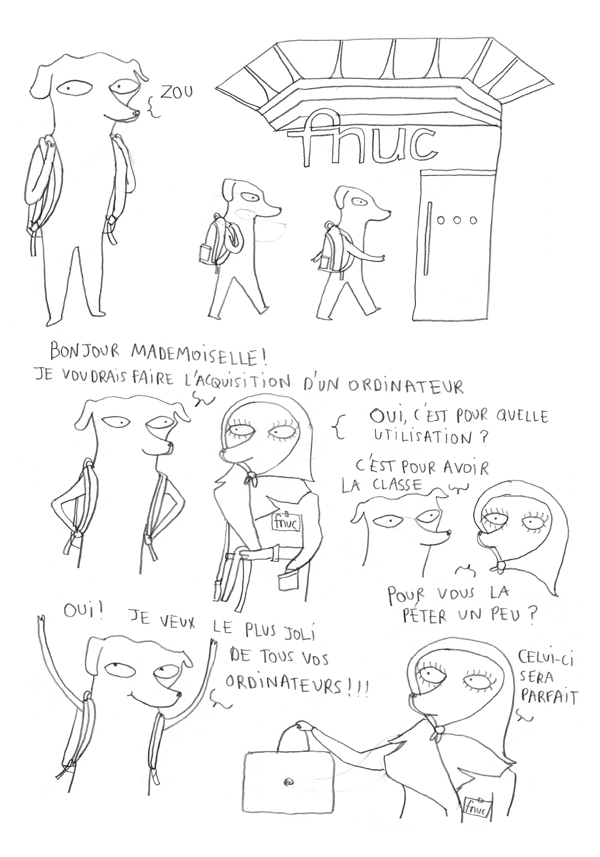 ZOU
fnuc
BONJOUR MADEMOISELLE!
JE VOUDRAIS FAIRE L'ACQUISITION D'UN ORDINATEUR
OUI, C'EST POUR QUELLE
UTILISATION?
C'EST POUR AVOIR
LA CLASSE
fnuc
POUR VOUS LA
PÉTER UN PEU?
OUI! JE VEUX LE PLUS JOLI
DE TOUS VOS
ORDINATEURS!!!
CELUI-CI
SERA
PARFAIT
@
fnuc